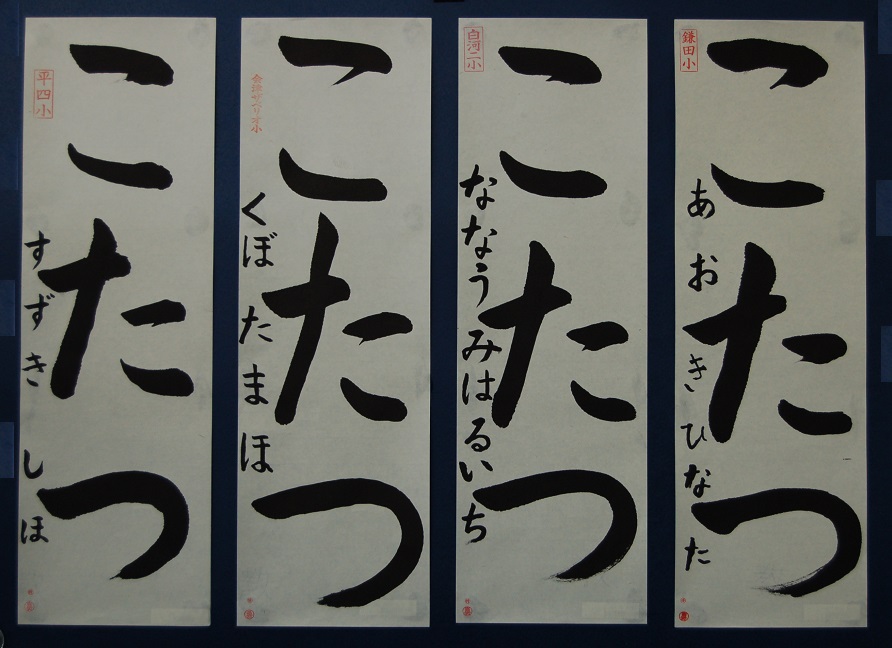 こたつ
鎌田小
あおき ひなた
こたつ
白河二小
ななうみ はるいち
こたつ
会津ザベリオ小
くぼた まほ
こたつ
平四小
すずき しほ